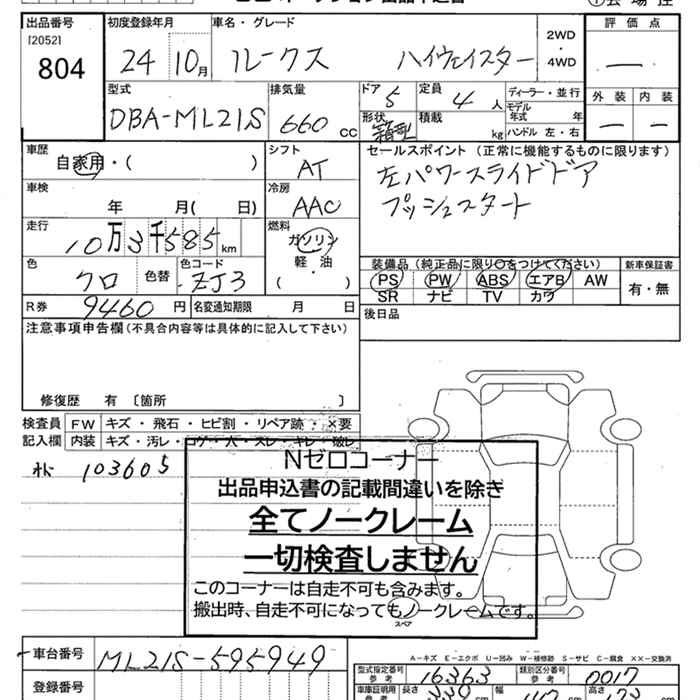 出品番号 初度登録年月 車名・グレード 評価点
[2052]
804
24 10月 ルークス ハイウェイスター 2WD・4WD
型式 排気量 ドア 定員 ディーラー・並行 外装 内装
DBA-ML21S 660 CC 5 4人 モデル年式 年
形状 積載 kg ハンドル 左・右
箱型
車歴 シフト セールスポイント(正常に機能するものに限ります)
自家用・( ) AT 左パワースライドドア
車検 冷房 プッシュスタート
年 月( 日) AAC
走行 燃料
10万3千585km ガソリン
軽油・( )
色 色替 色コード
クロ ZJ3
装備品(純正品に限り○をつけてください) 新車保証書
PS PW ABS エアB AW 有・無
SR ナビ TV カワ
R券 9460円 名変通知期限 月 日 後日品
注意事項申告欄(不具合内容等は具体的に記入して下さい)
修復歴 有〔箇所 〕
検査員記入欄 FW キズ・飛石・ヒビ割・リペア跡・×要
内装 キズ・汚レ・コゲ・穴・スレ・キレ・破レ
103605
Nゼロコーナー
出品申込書の記載間違いを除き
全てノークレーム
一切検査しません
このコーナーは自走不可も含みます。
搬出時、自走不可になってもノークレームです。
スペア
A-キズ E-エクボ U-凹み W-補修跡 S-サビ C-腐食 XX-交換済
車台番号 ML21S-595949
型式指定番号 参考 16363 類別区分番号 参考 0017
登録番号 車庫証明用 参考 長さ 幅 高さ